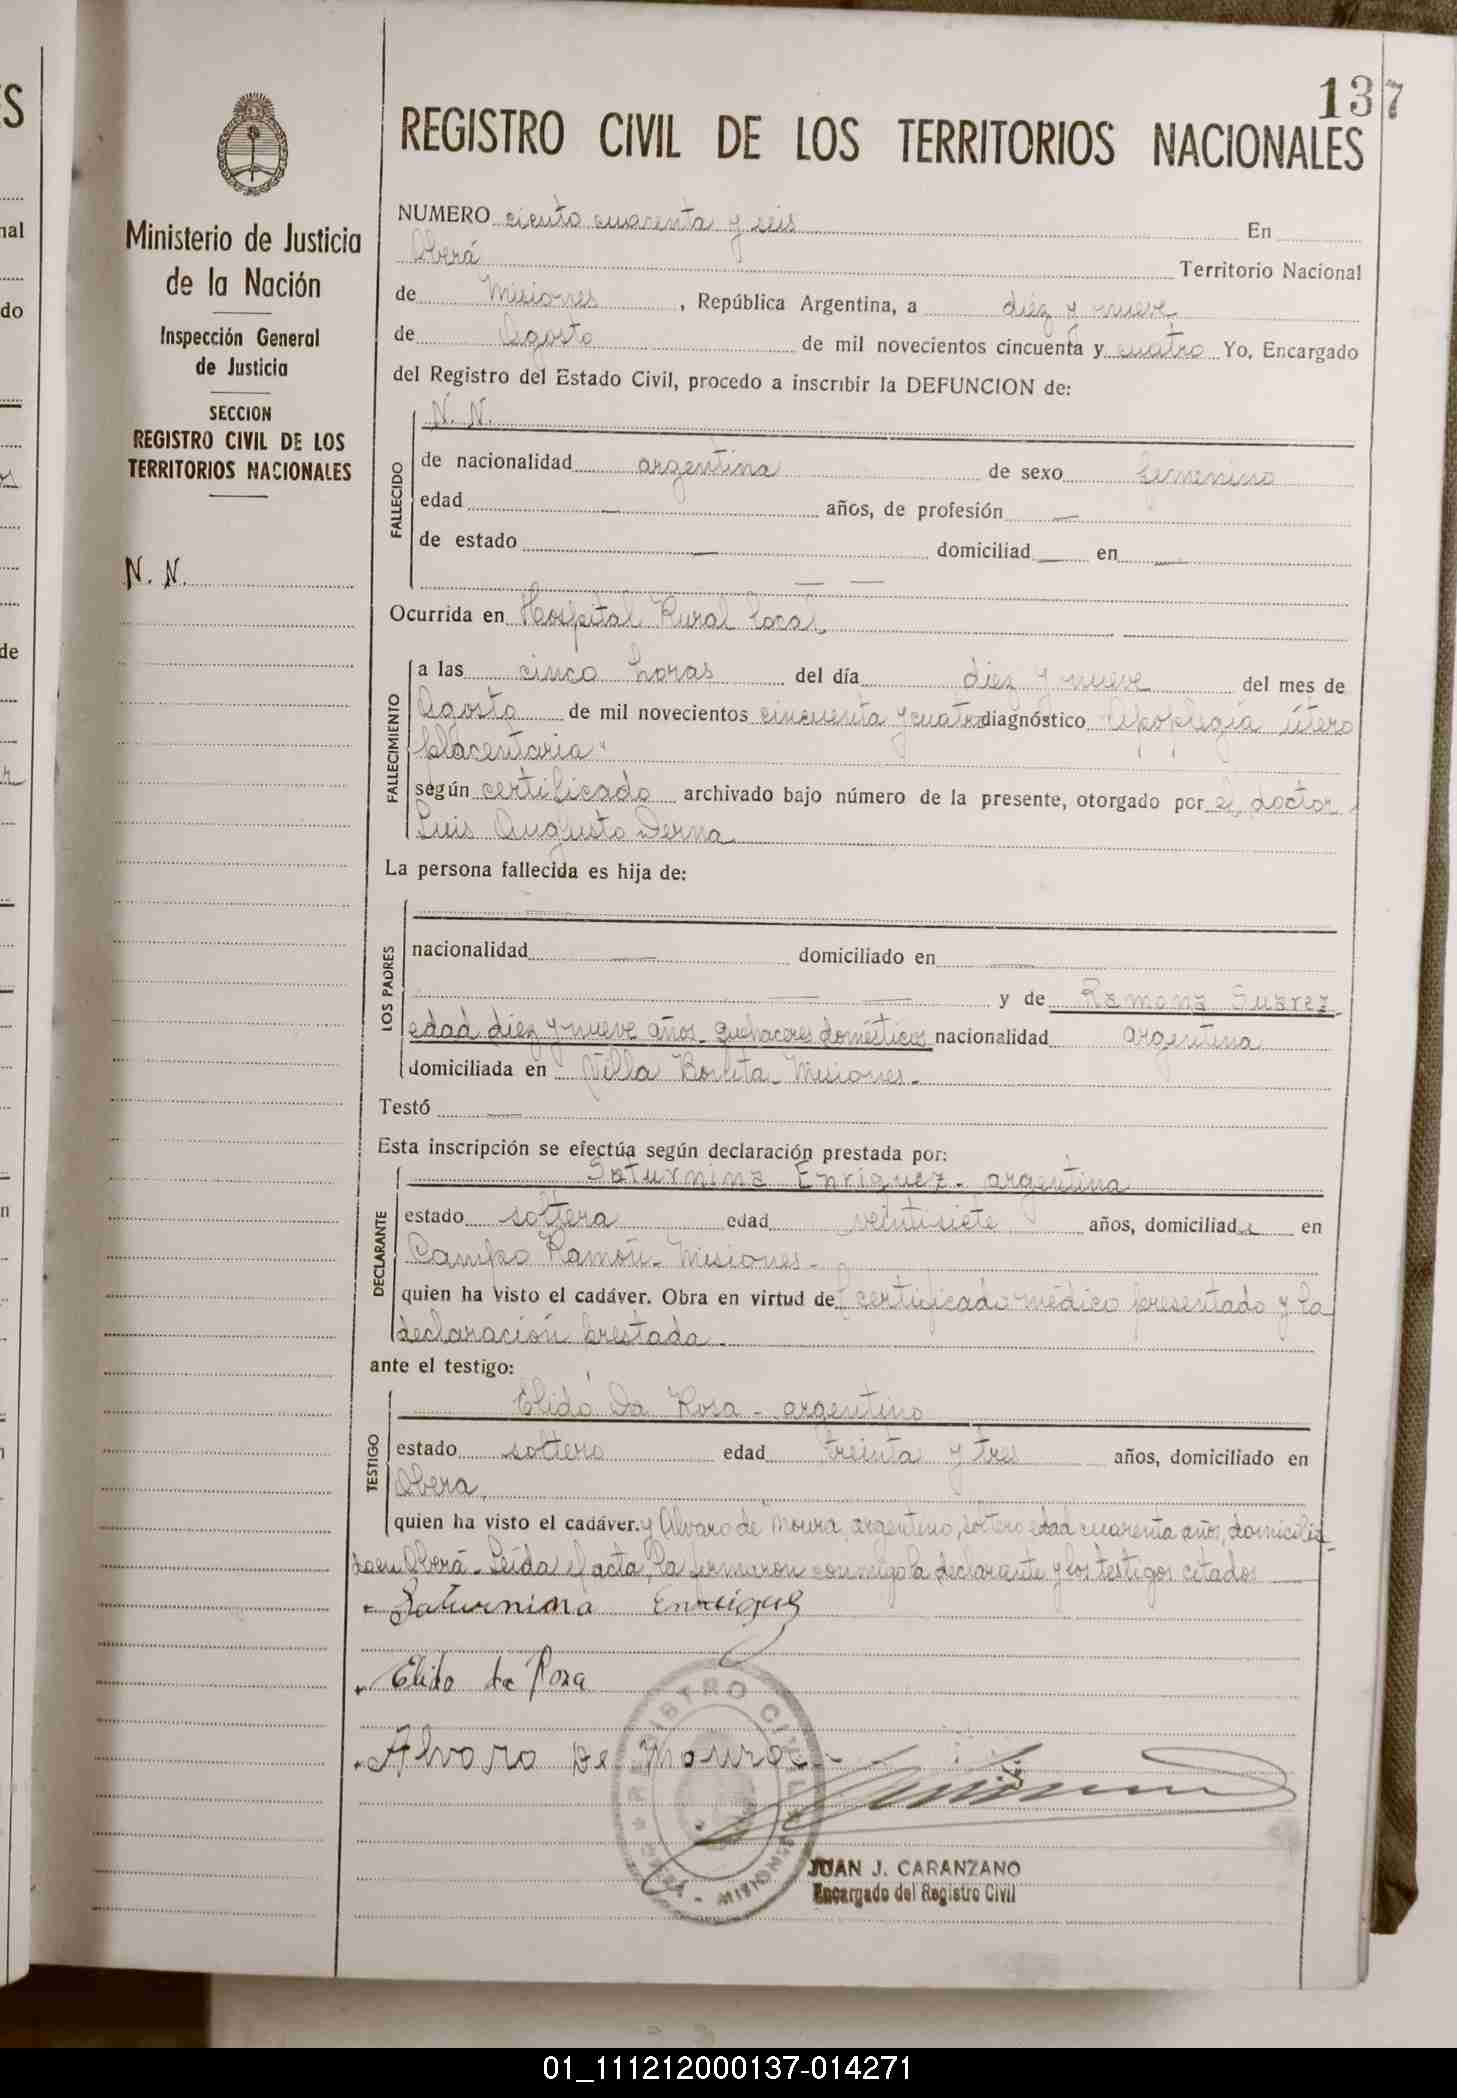 137
REGISTRO CIVIL DE LOS TERRITORIOS NACIONALES
Ministerio de Justicia
de la Nación
Inspección General
de Justicia
SECCION
REGISTRO CIVIL DE LOS
TERRITORIOS NACIONALES
N. N.
NUMERO ciento cuarenta y seis En
Oberá Territorio Nacional
de Misiones, República Argentina, a diez y nueve
de Agosto de mil novecientos cincuenta y cuatro Yo, Encargado
del Registro del Estado Civil, procedo a inscribir la DEFUNCION de:
FALLECIDO
N. N.
de nacionalidad argentina de sexo femenino
edad — años, de profesión —
de estado — domiciliad — en —
— —
Ocurrida en Hospital Rural local
FALLECIMIENTO
a las cinco horas del día diez y nueve del mes de
Agosto de mil novecientos cincuenta y cuatro diagnóstico "Apoplegía útero
placentaria"
según certificado archivado bajo número de la presente, otorgado por el doctor
Luis Augusto Derna
La persona fallecida es hija de:
LOS PADRES
—
nacionalidad — domiciliado en —
— — y de Ramona Suarez
edad diez y nueve años - quehaceres domésticos nacionalidad argentina
domiciliada en Villa Bonita - Misiones -
Testó —
Esta inscripción se efectúa según declaración prestada por:
DECLARANTE
Saturnina Enriquez - argentina
estado soltera edad veintisiete años, domiciliada en
Campo Ramón - Misiones -
quien ha visto el cadáver. Obra en virtud del certificado médico presentado y la
declaración prestada -
ante el testigo:
TESTIGO
Elido Da Rosa - argentino
estado soltero edad treinta y tres años, domiciliado en
Oberá
quien ha visto el cadáver. y Alvaro de Moura, argentino, soltero edad cuarenta años, domicilia-
do en Oberá - Leída el acta, la firmaron conmigo la declarante y los testigos citados
Saturnina Enriquez
Elido da Rosa
Alvaro De Moura
REGISTRO CIVIL
MISIONES
JUAN J. CARANZANO
Encargado del Registro Civil
01_111212000137-014271